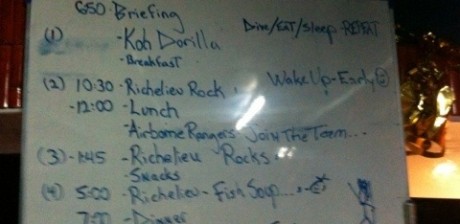 650 Briefing
Dive/EAT/Sleep-REPEAT
(1) -Koh Dorilla
-Breakfast
(2) 10:30 -Richelieu Rock.
Wake Up-Early
-12:00 -Lunch
-Airborne Rangers Join The Team...
(3)-1:45 -Richelieu Rocks.
-Snacks
(4) 5:00 -Richelieu-Fish Soup...
7:00 -Dinner